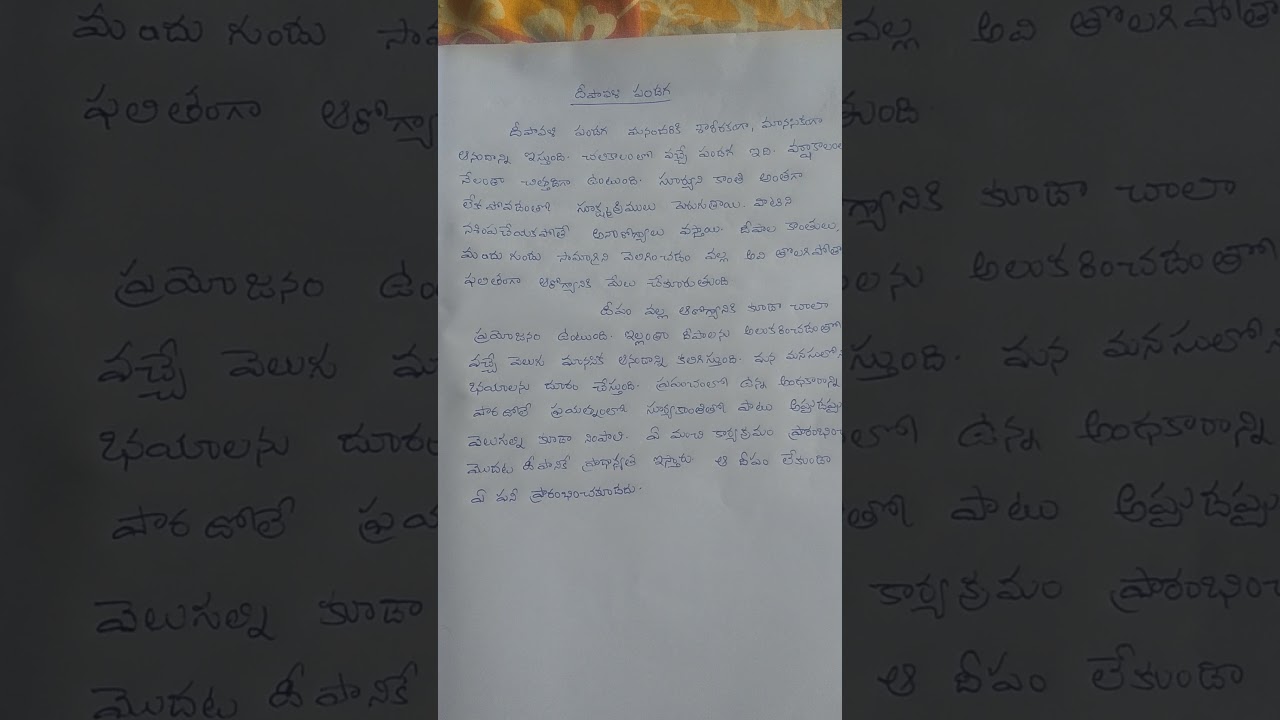 దీపావళి పండగ
దీపావళి పండగ మనందరికి శారీరకంగా, మానసికంగా
ఆనందాన్ని ఇస్తుంది. చలికాలంలో వచ్చే పండగ ఇది. వర్షాకాలంలో
నేలంతా చిత్తడిగా ఉంటుంది. సూర్యుని కాంతి అంతగా
లేకపోవడంతో సూక్ష్మక్రిములు పెరుగుతాయి. వాటిని
నశింపచేయకపోతే అనారోగ్యాలు వస్తాయి. దీపాల కాంతులు,
మందుగుండు సామాగ్రిని వెలిగించడం వల్ల అవి తొలగిపోతా
ఫలితంగా ఆరోగ్యానికి మేలు చేకూరుతుంది
దీపం వల్ల ఆరోగ్యానికి కూడా చాలా
ప్రయోజనం ఉంటుంది. ఇల్లంతా దీపాలను అలంకరించడంతో
వచ్చే వెలుగు మానసిక ఆనందాన్ని కలిగిస్తుంది. మన మనసులోని
భయాలను దూరం చేస్తుంది. ప్రపంచంలో ఉన్న అంధకారాన్ని
పారదోలే ప్రయత్నంలో సూర్యకాంతితో పాటు అప్పుడప్పు
వెలుగుల్ని కూడా నింపాలి. ఏ మంచి కార్యక్రమం ప్రారంభించ
మొదట దీపానికే ప్రాధాన్యత ఇస్తారు. ఆ దీపం లేకుండా
ఏ పనీ ప్రారంభించకూడదు.